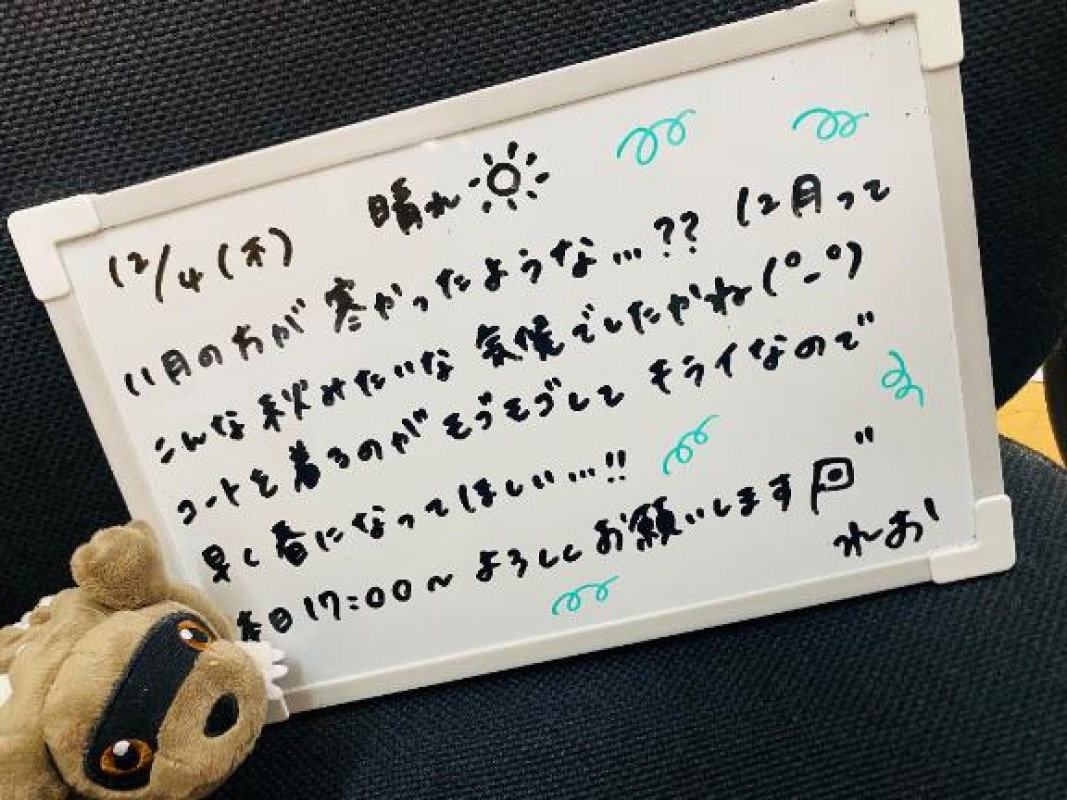 12/4(木) 晴れ
11月の方が寒かったような…?? 12月って
こんな秋みたいな気候でしたかね(°-°)
コートを着るのがモゾモゾしてキライなので
早く春になってほしい…!!
本日17:00~よろしくお願いします
れお